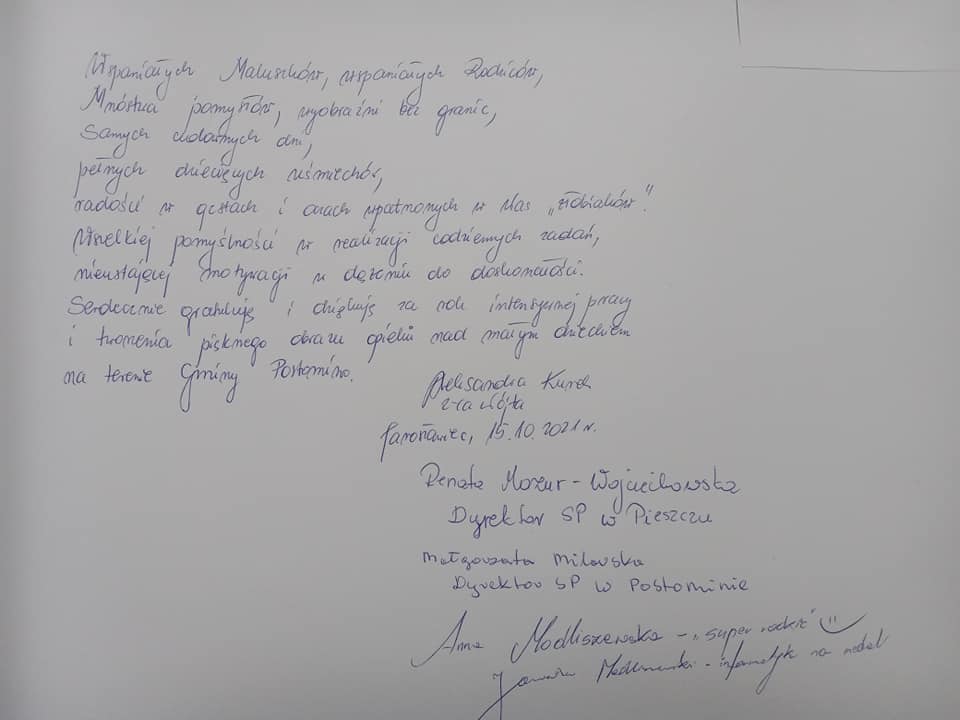 Wspaniałych Maluszków, wspaniałych Rodziców,
Mnóstwa pomysłów, wyobraźni bez granic,
Samych cudownych dni,
pełnych dziecięcych uśmiechów,
radości w gestach i oczach wpatrzonych w Was „żłobiaków".
Wszelkiej pomyślności w realizacji codziennych zadań,
nieustającej motywacji w dążeniu do doskonałości.
Serdecznie gratuluję i dziękuję za rok intensywnej pracy
i tworzenia pięknego obrazu opieki nad małym dzieckiem
na terenie Gminy Postomino.
Aleksandra Kurek
z-ca wójta
Jarosławiec, 15.10.2021 r.
Renata Mazur-Wojciechowska
Dyrektor SP w Pieszczu
Małgorzata Milewska
Dyrektor SP w Postominie
Anna Modliszewska - „super rodzic"
Modliszewski - informatyk na medal